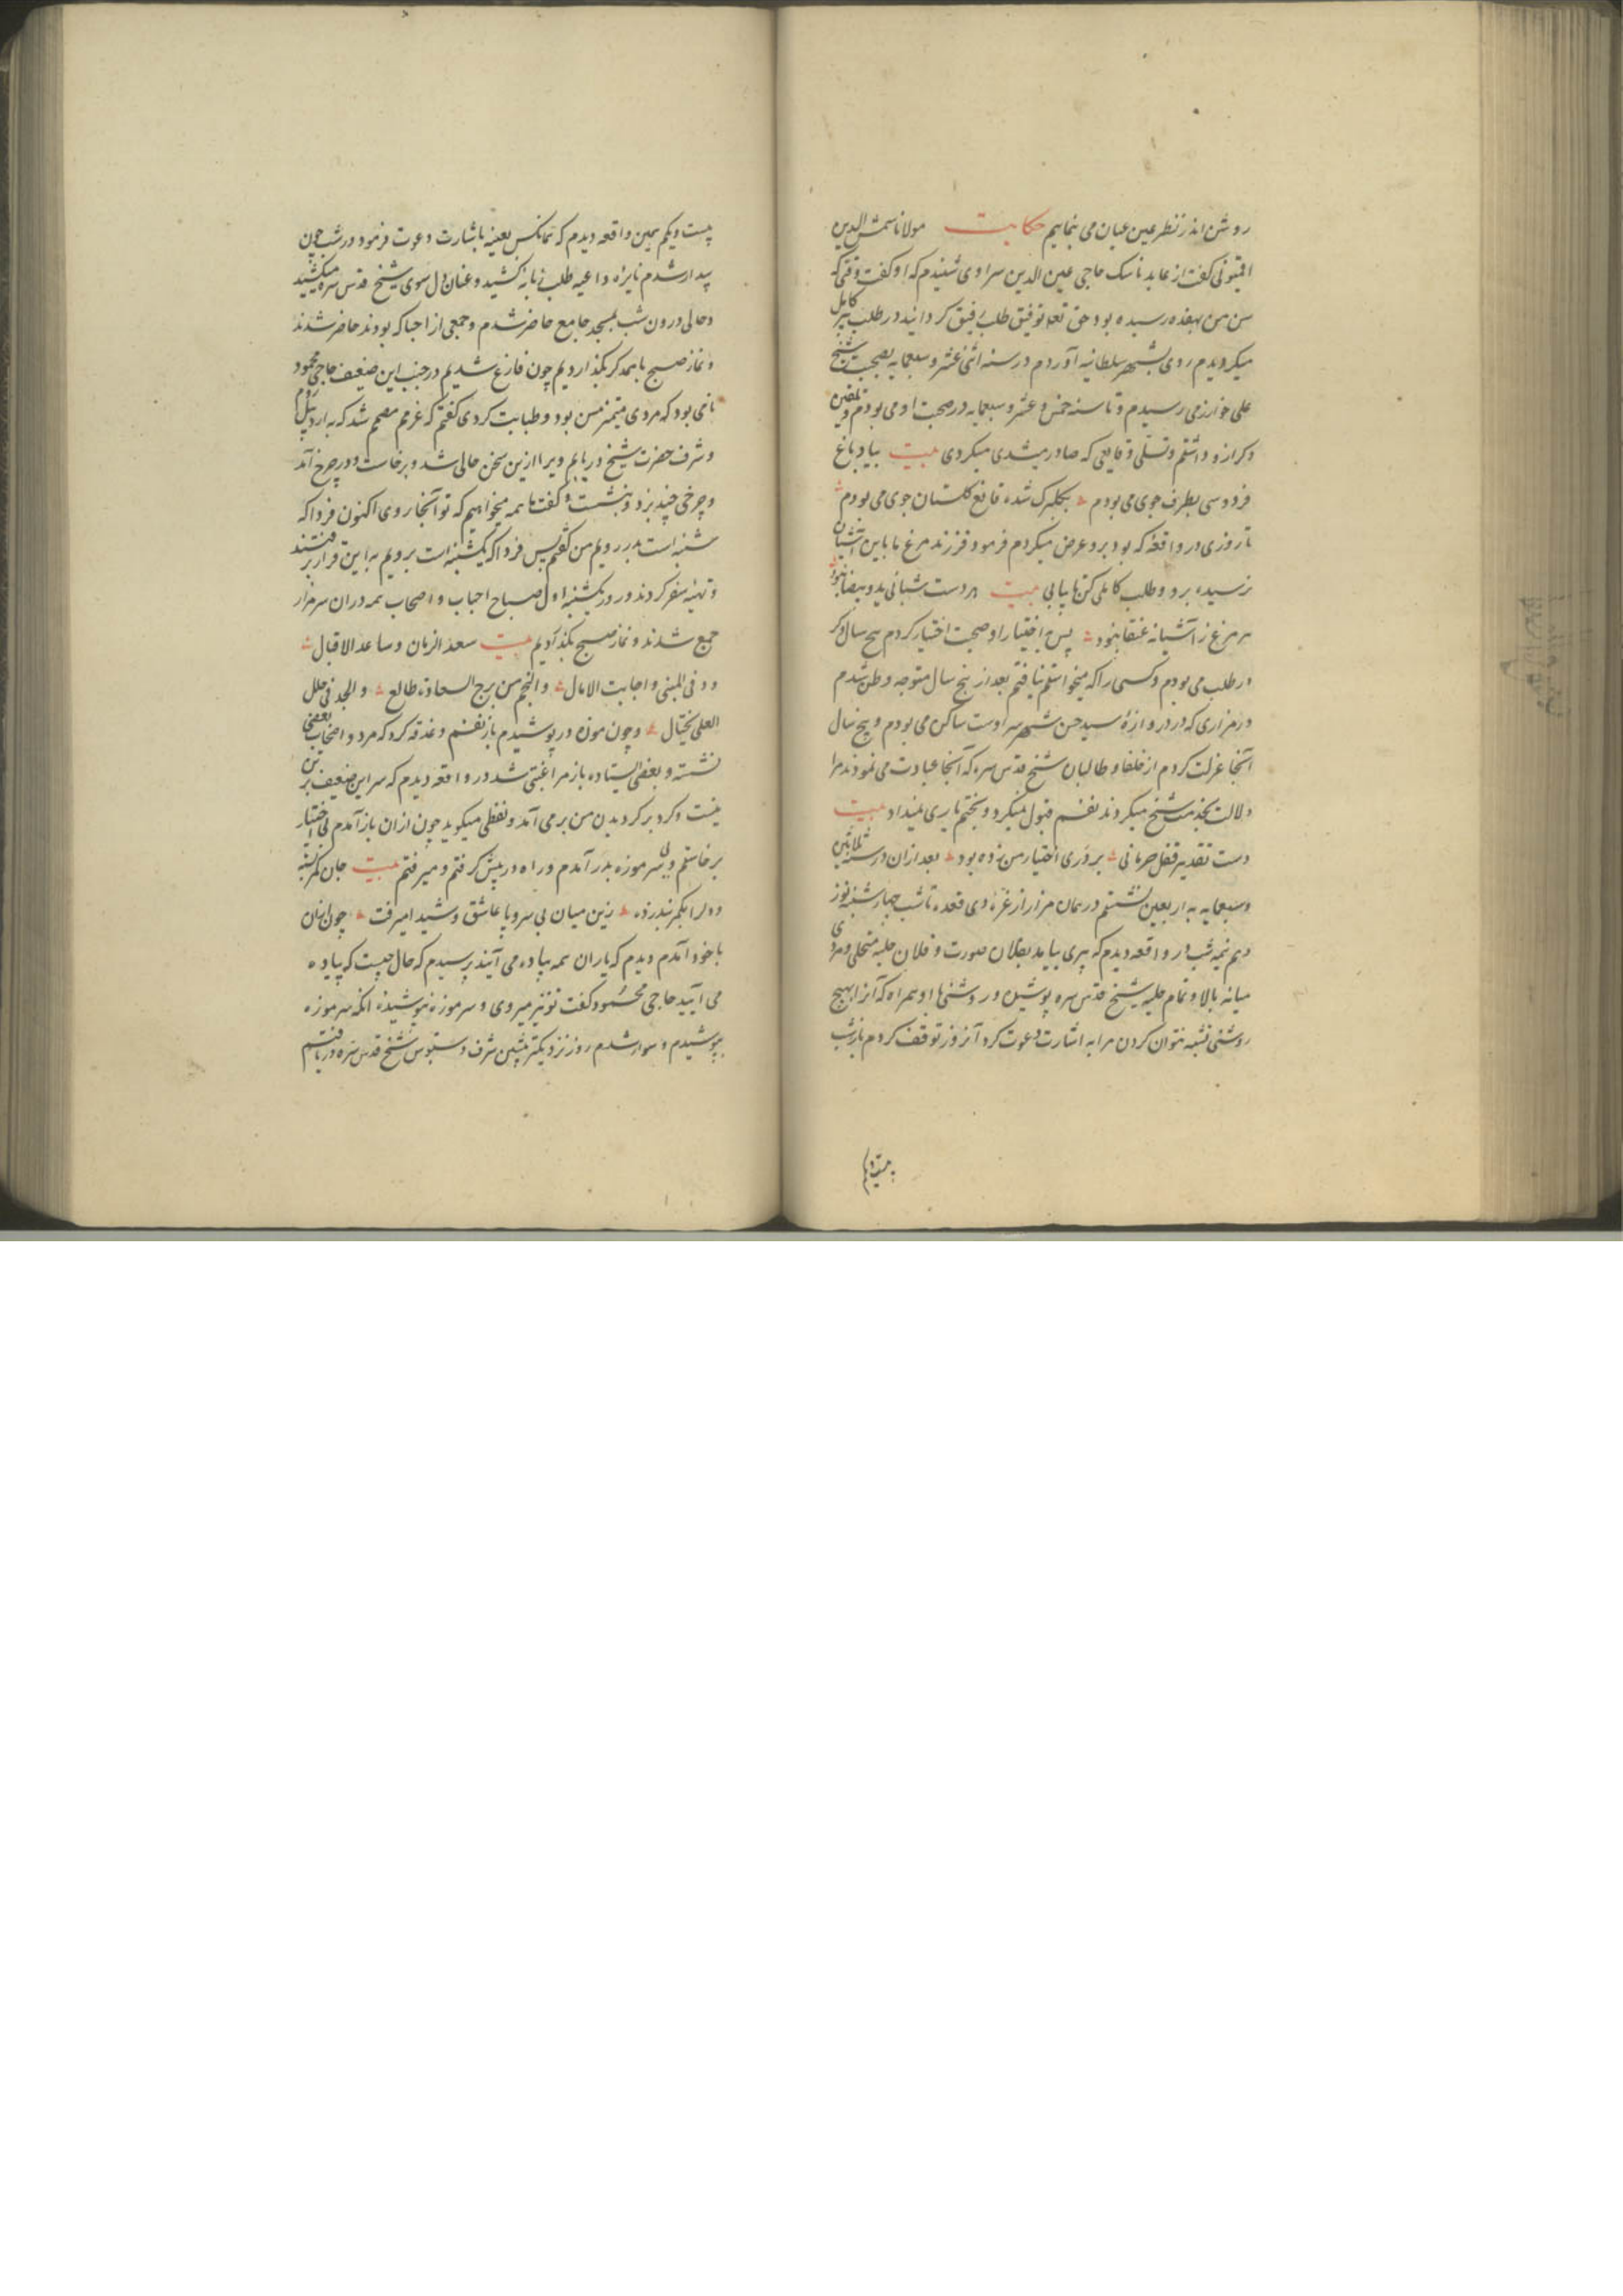 روشن اندر نظر عین عیان می نماییم حکایت مولانا شمس الدین
اقیونی گفت از عابد ناسک حاجی عین الدین سراوی شنیدم که او گفت وقتی که
سن من بهفده رسیده بود حق تعه توفیق طلب رفیق کردانید در طلب پیر کامل
میکردیدم روی بشهر سلطانیه آوردم در سنه اثنی عشر و سبعمایه بصحبت شیخ
علی خوارزمی رسیدم و تا سنه خمس و عشر و سبعمایه در صحبت او می بودم و تلقین
ذکر ازو داشتم و تسلی وقایعی که صادر میشدی میکردی بیت بیاد باغ
فردوسی بطرف جوی می بودم بیکبرک شده قانع کلستان جوی می بودم
تا روزی در واقعه که بود برو عرض میکردم فرمود فرزند مرغ ما باین آشیان
نرسیده برو و طلب کاملی کن تا یابی بیت هر دست شبانی ید و بیضا نبود
هر مرغ ز آشیانه عنقا نبود پس باختیار او صحبت اختیار کردم پنج سال دکر
در طلب می بودم و کسی را که میخواستم نیافتم بعد از پنج سال متوجه وطن شدم
در مزاری که در دروازهٔ سید حسن شهر سراوست ساکن می بودم و پنج سال
آنجا عزلت کردم از خلفا و طالبان شیخ قدس سره که آنجا عبادت می نمودند مرا
دلالت بخدمت شیخ میکردند نفسم قبول نمیکرد و بختم یاری نمیداد بیت
دست تقدیر قفل حرمانی بر در اختیار من زده بود بعد ازان در سنه ثلاثین
و سبعمایه به اربعین نشستم در همان مزار از غرهٔ ذی قعده تا شب چهارشنبه نوز
دهم نیمه شب در واقعه دیدم که پیری بیامد بفلان صورت و فلان حلیه متحلی و مردی
میانه بالا و تمام حلیه شیخ قدس سره پوشیده و روشنی با او همراه که آنرا بهیچ
روشنی تشبیه نتوان کردن مرا به اشارت دعوت کرد آنروز توقف کردم باز شب
بیست و یکم
بیست و یکم همین واقعه دیدم که همانکس بعینه باشارت دعوت فرمود در شب چون
بیدار شدم نایره داعیه طلب زبانه کشید و عنان دل سوی شیخ قدس سره میکشید
و حالی درون شب بمسجد جامع حاضر شدم و جمعی از احبا که بودند حاضر شدند
و نماز صبح باهمدکر بگذاردیم چون فارغ شدیم در جنب این ضعیف حاجی محمود
نامی بود که مردی متمیز مسن بود و طبابت کردی گفتم که عزمم مصمم شد که به اردبیل روم
و شرف حضرت شیخ دریابم ویرا ازین سخن حالی شد و برخاست و در چرخ آمد
و چرخی چند بزد و بنشست و گفت ما همه میخواهیم که تو آنجا روی اکنون فردا که
شنبه است بدر رویم من گفتم پس فردا که یکشنبه است برویم به این قرار برفتند
و تهیه سفر کردند و روز یکشنبه اول صباح احباب و اصحاب همه دران سر مزار
جمع شدند و نماز صبح بگذاردیم بیت سعد الزمان و ساعد الاقبال
و دنی المنی و اجابت الامال والنجم من برج السعادة طالع والمجد فی حلل
العلی یختال و چون موزه در پوشیدم باز نفسم دغدغه کرد که مرد و اصحاب بعضی
نشسته و بعضی ایستاده باز مرا غیبتی شد در واقعه دیدم که سر این ضعیف بر تن
نیست و کرد بر کرد بدن من بر می آمد و لفظی میکوید چون ازان باز آمدم بی اختیار
برخاستم و بی سر موزه بدر آمدم و راه در پیش گرفتم و میرفتم بیت جان کمر بسته
و دل را بکمر بر زده زین میان بی سر و پا عاشق و شیدا میرفت چون ازان
با خود آمدم دیدم که یاران همه پیاده می آیند پرسیدم که حال چیست که پیاده
می آیید حاجی محمود گفت تو نیز میروی و سر موزه نپوشیده آنکه سر موزه
بپوشیدم و سوار شدم روز نزدیکتر پیشین شرف دستبوس شیخ قدس سره دریافتم